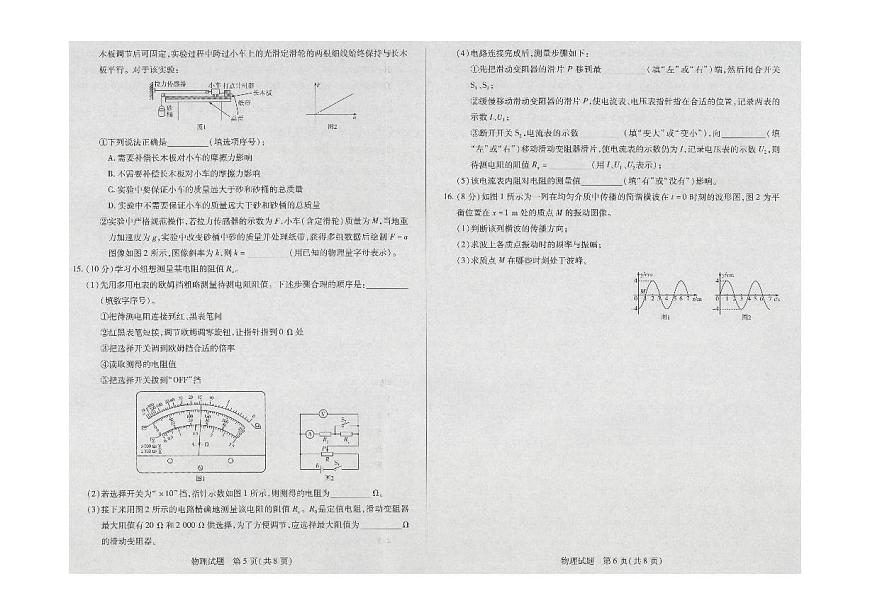 木板调节后可固定,实验过程中跨过小车上的光滑定滑轮的两根细线始终保持与长木
板平行。对于该实验:
拉力传感器
小车 打点计时器
长木板
纸带
砂
桶
图1
图2
①下列说法正确是________(填选项序号);
A. 需要补偿长木板对小车的摩擦力影响
B. 不需要补偿长木板对小车的摩擦力影响
C. 实验中要保证小车的质量远大于砂和砂桶的总质量
D. 实验中不需要保证小车的质量远大于砂和砂桶的总质量
②实验中严格规范操作,若拉力传感器的示数为 F,小车(含定滑轮)质量为 M,当地重
力加速度为 g,实验中改变砂桶中砂的质量并处理纸带,获得多组数据后绘制 F - a
图像如图 2 所示,图像斜率为 k,则 k = ________(用已知的物理量字母表示)。
15. (10 分)学习小组想测量某电阻的阻值 Rx。
(1)先用多用电表的欧姆挡粗略测量待测电阻阻值。下述步骤合理的顺序是:________
(填数字序号)。
①把待测电阻连接到红、黑表笔间
②红黑表笔短接,调节欧姆调零旋钮,让指针指到 0 Ω 处
③把选择开关调到欧姆挡合适的倍率
④读取测得的电阻值
⑤把选择开关拨到“OFF”挡
图1
图2
(2)若选择开关为“×10”挡,指针示数如图 1 所示,则测得的电阻为________Ω。
(3)接下来用图 2 所示的电路精确地测量该电阻的阻值 Rx。R0是定值电阻,滑动变阻器
最大阻值有 20 Ω 和 2 000 Ω 供选择,为了方便调节,应选择最大阻值为________Ω
的滑动变阻器。
物理试题 第 5 页(共 8 页)
(4)电路连接完成后,测量步骤如下:
①先把滑动变阻器的滑片 P 移到最________(填“左”或“右”)端,然后闭合开关
S1、S2;
②缓慢移动滑动变阻器的滑片 P,使电流表、电压表指针指在合适的位置,记录两表的
示数 I、U1;
③断开开关 S2,电流表的示数________(填“变大”或“变小”),向________(填
“左”或“右”)移动滑动变阻器滑片,使电流表的示数仍为 I,记录电压表的示数 U2,则
待测电阻的阻值 Rx = ________(用 I、U1、U2表示);
(5)该电流表内阻对电阻的测量值________(填“有”或“没有”)影响。
16. (8 分)如图 1 所示为一列在均匀介质中传播的简谐横波在 t = 0 时刻的波形图,图 2 为平
衡位置在 x = 1 m 处的质点 M 的振动图像。
(1)判断该列横波的传播方向;
(2)求波上各质点振动时的频率与振幅;
(3)求质点 M 在哪些时刻处于波峰。
图1
图2
物理试题 第 6 页(共 8 页)